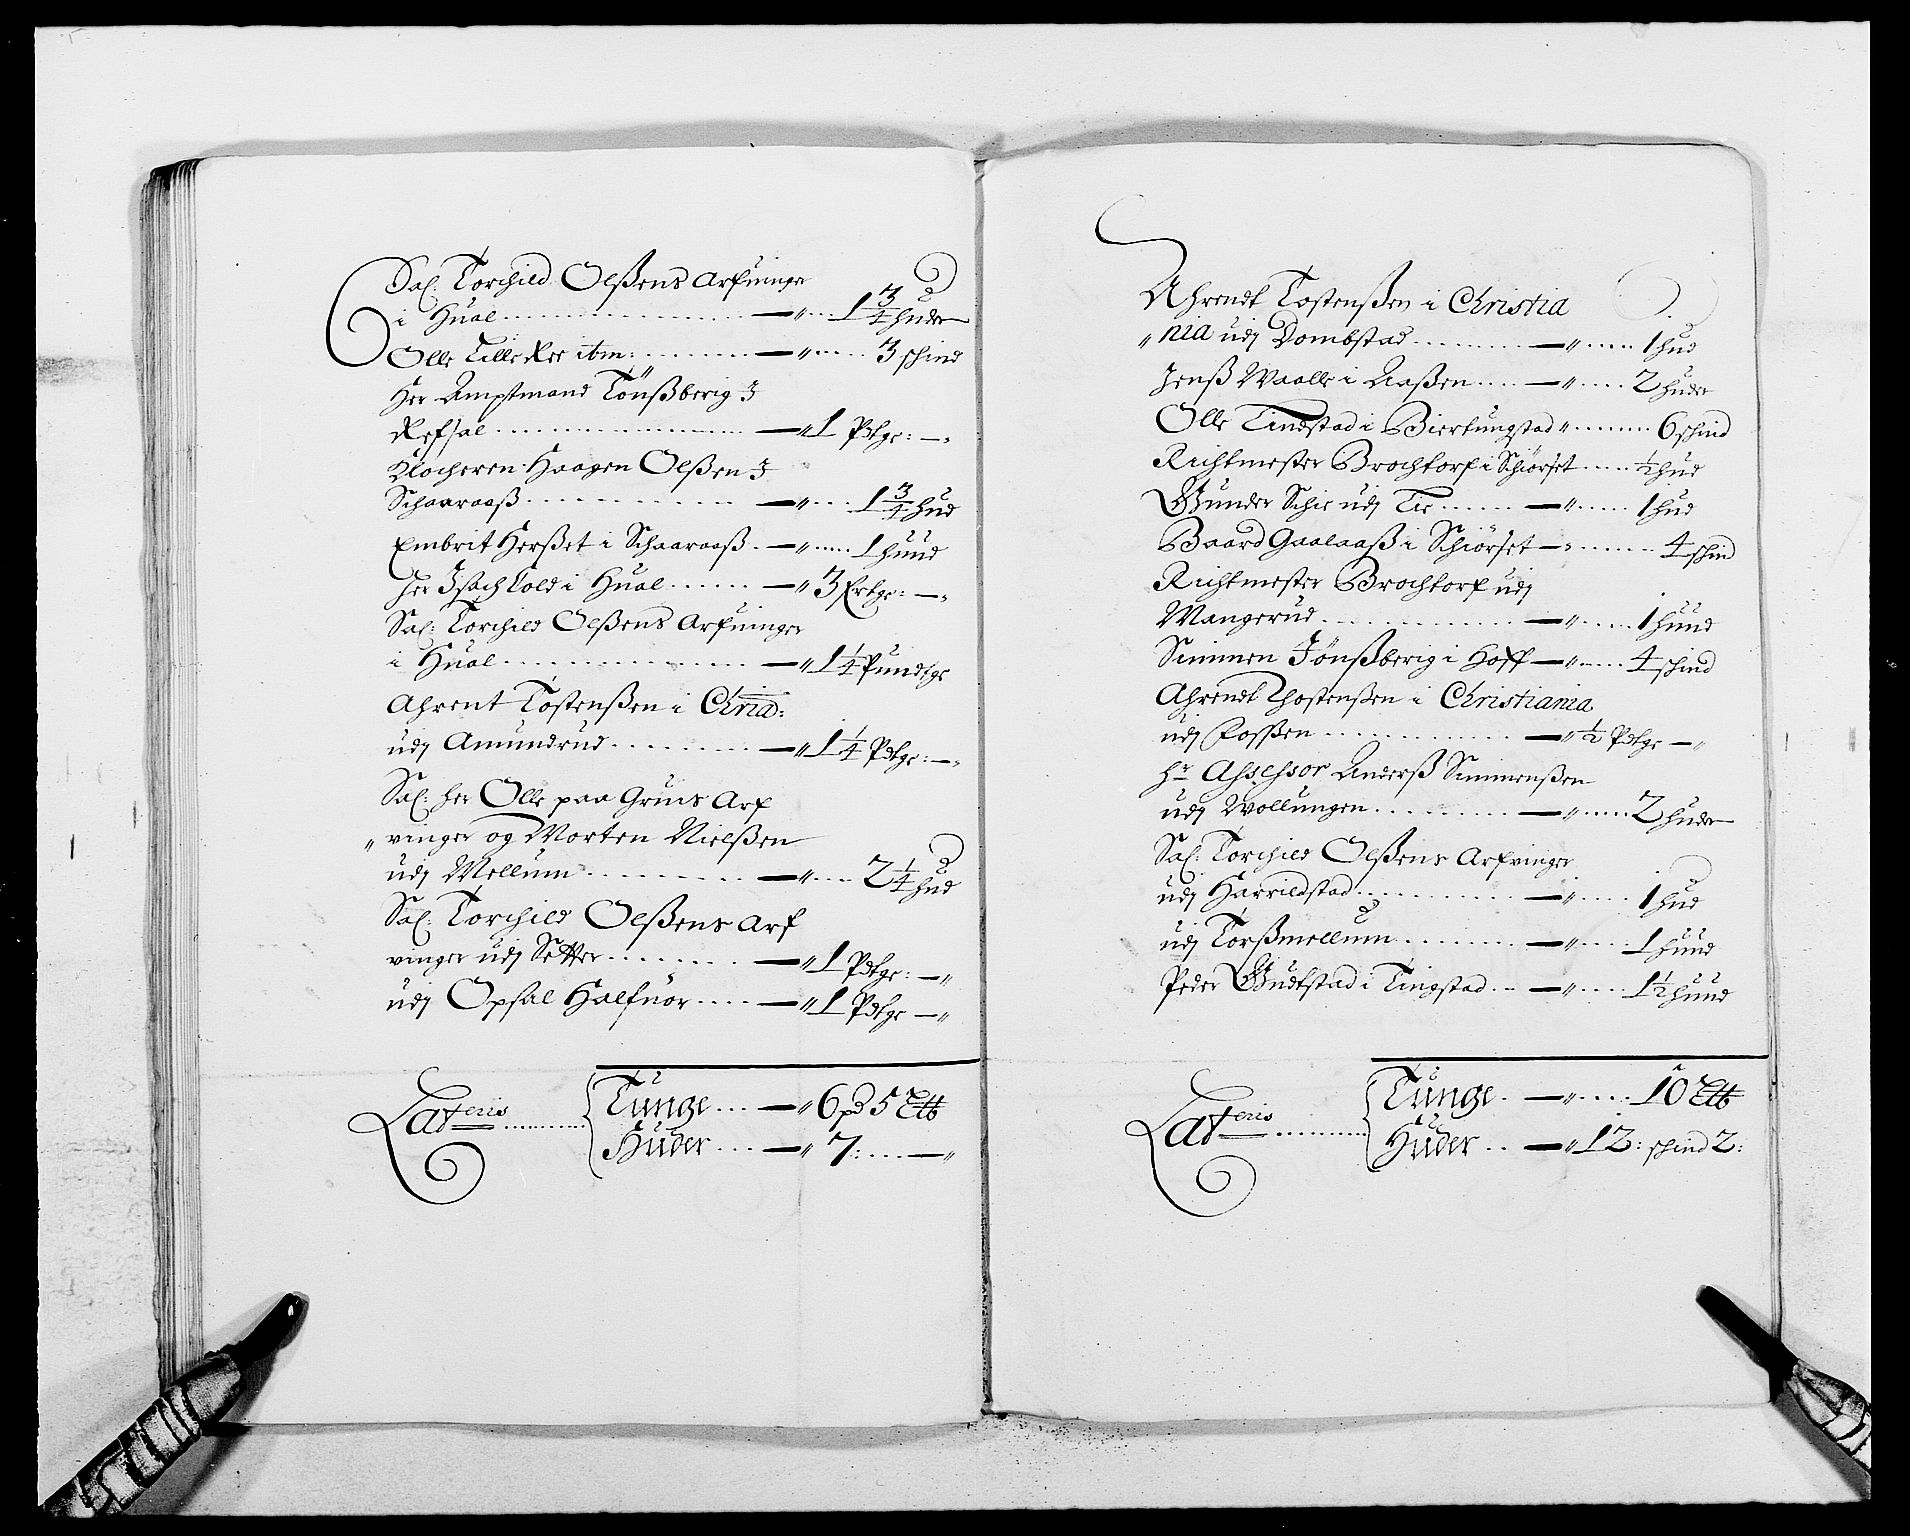 Sal: Torchild Olßens Arfuinger
i Hual ........ — " .... 1 3/4 huder
Olle Lille Ree itm: ........ — " ...... 3 schind
Her Amptmand Tönßberig I
Refsal ........ — " 1 Pdtge: — "
Klocheren Haagen Olßen I
Schaaraaß ........ — " .... 1 3/4 hud
Embrit Herßet i Schaaraaß . — " ...... 1 huud
Her Isach Cold i Hual ...... — " 3 Ertge: — "
Sal: Torchild Olßens Arfuinger
i Hual ........ — " 1 1/4 Pundtge
Ahrent Tostenßen i Chria:
udj Amundrud ........ — " 1 1/4 Pdtge: — "
Sal: her Olle paa Gruis Arf
" vinger og Morten Nielßen
udj Mellum ........ — " .... 2 1/4 hud
Sal: Torchild Olßens Arf
vinger udj Setter ........ — " 1 Pdtge: — "
udj Opsal Halfuor .... — " 1 Pdtge — "
Lateris ........ Tunge .... — " 6 pd 5 Ltb
Huder .... — " 7: .... — "
Ahrendt Tostenßen i Christia
" nia udj Dombstad ........ — " ...... 1 hud
Jenß Waalle i Aaßen .... — " ..... 2 huder
Olle Tindstad i Biertungstad " ........ 6 schind
Richtmester Brochtorf i Schiörset ..... 1/2 hud
Gunder Schie udj Tie ...... — " ...... 1 hud
Baard Gaalaaß i Schiörset — " ........ 4 schind
Richtmester Brochtorf udj
Mangerud ........ — " ..... 1 huud
Simmen Jönßberig i Hoff — " ..... 4 schind
Ahrendt Thostenßen i Christiania
udj Foßßen ........ — " 1/2 Pdtge — "
hr Assessor Anderß Simmenßen
udj Wollungen ........ — " ..... 2 huder
Sal: Torchild Olßens Arfvinger
udj Harrildstad ........ — " ..... 1 hud
udj Torßmellum ........ — " ..... 1 huud
Peder Gudtstad i Tingstad .. — " .... 1 1/2 huud
Lateris ........ Tunge . — " ..... 10 Ltb
Huder .. — " 12: schind 2: